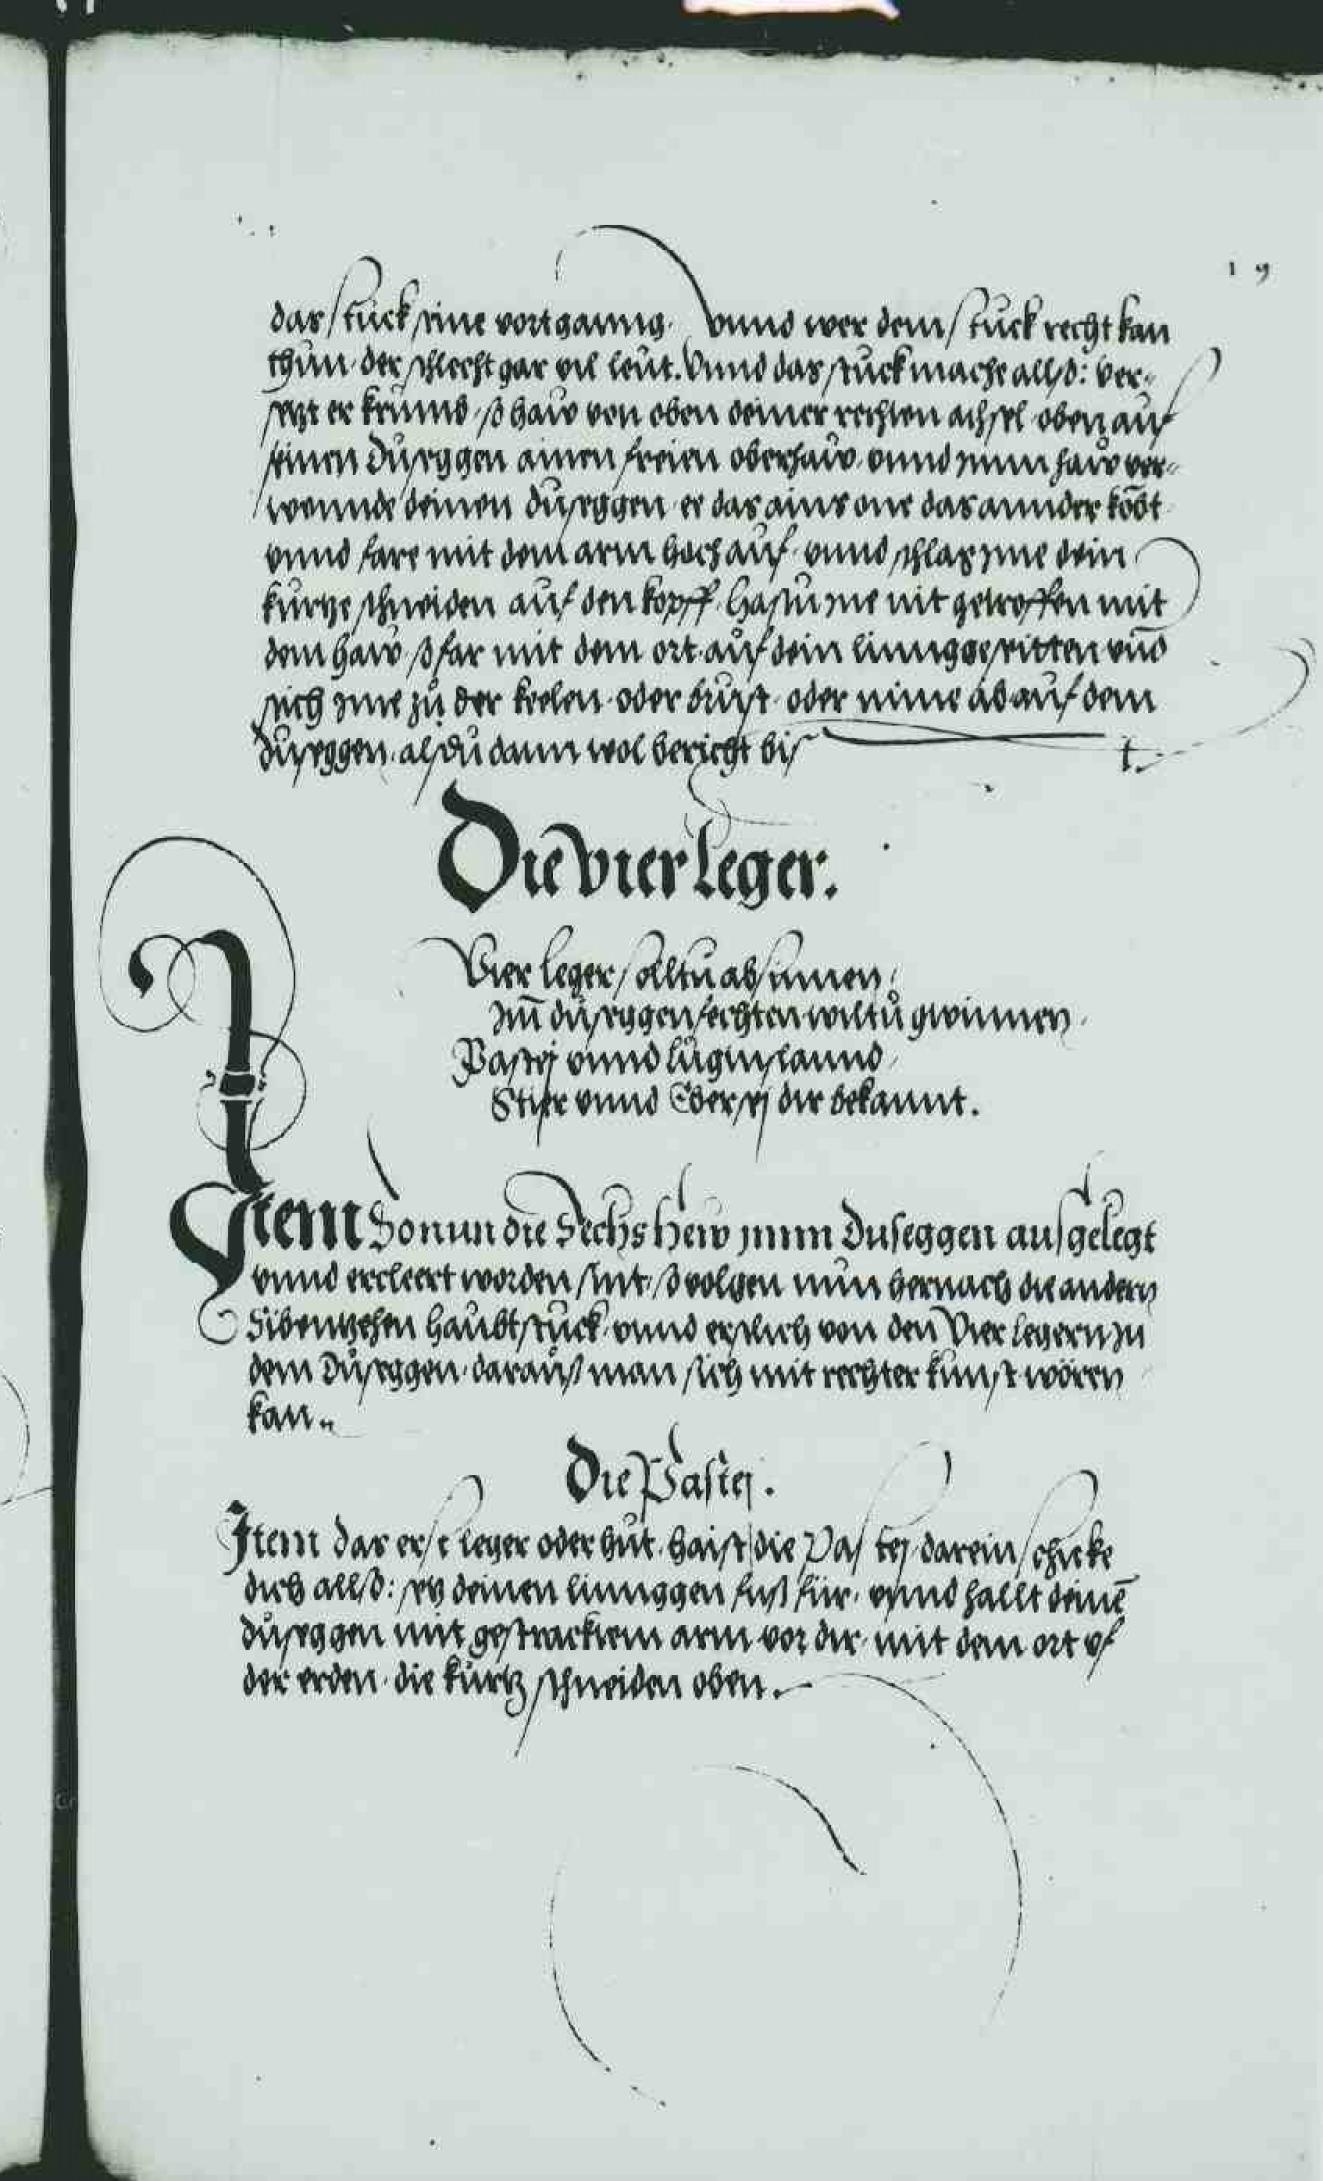 19
das stuck seine vortganng. vnnd wer dem stuck recht kan
thun. der schlecht gar vil leut. Vnnd das stuck mache allso: ver-
setzt er krumb, so haw von oben deiner rechten achsel oben auf
seinen Duseggen ainen freien oberhaw. vnnd jnnn haw ver-
wennde deinen duseggen. er das ains one das annder kōbt
vnnd fare mit dem arm hoch auf. vnnd schlag jme dein
kurtze schneiden auf den kopff. Hastu jme nit getroffen mit
dem haw, so far mit dem ort auf dein linngge seitten vnd
stich jme zu der keelen. oder brust. oder nime ab auf dem
duseggen. alsdu dann wol bericht bist
Die vier Leger.
Vier leger solltu absinnen,
jm̄ duseggen fechten wiltu gwinnen.
Pastej vnnd luginslannd,
Stier vnnd Eber sej dir bekannt.
Item So nun die Sechs Hew jnnn Duseggen ausgelegt
vnnd ercleert worden sint, so volgen nun hernach die andern
Sibentzehen Haubtstuck. vnnd erstlich von den Vier legern zu
dem Duseggen. darauß man sich mit rechter kunst wören
kan.
Die Pastej.
Item das erst leger oder hut. haist die Pastej. darein schicke
dich allso: setz deinen linnggen fuß für. vnnd hallt deinē
duseggen mit gestracktem arm vor dir. mit dem ort vf
der erden. die kurtz schneiden oben.